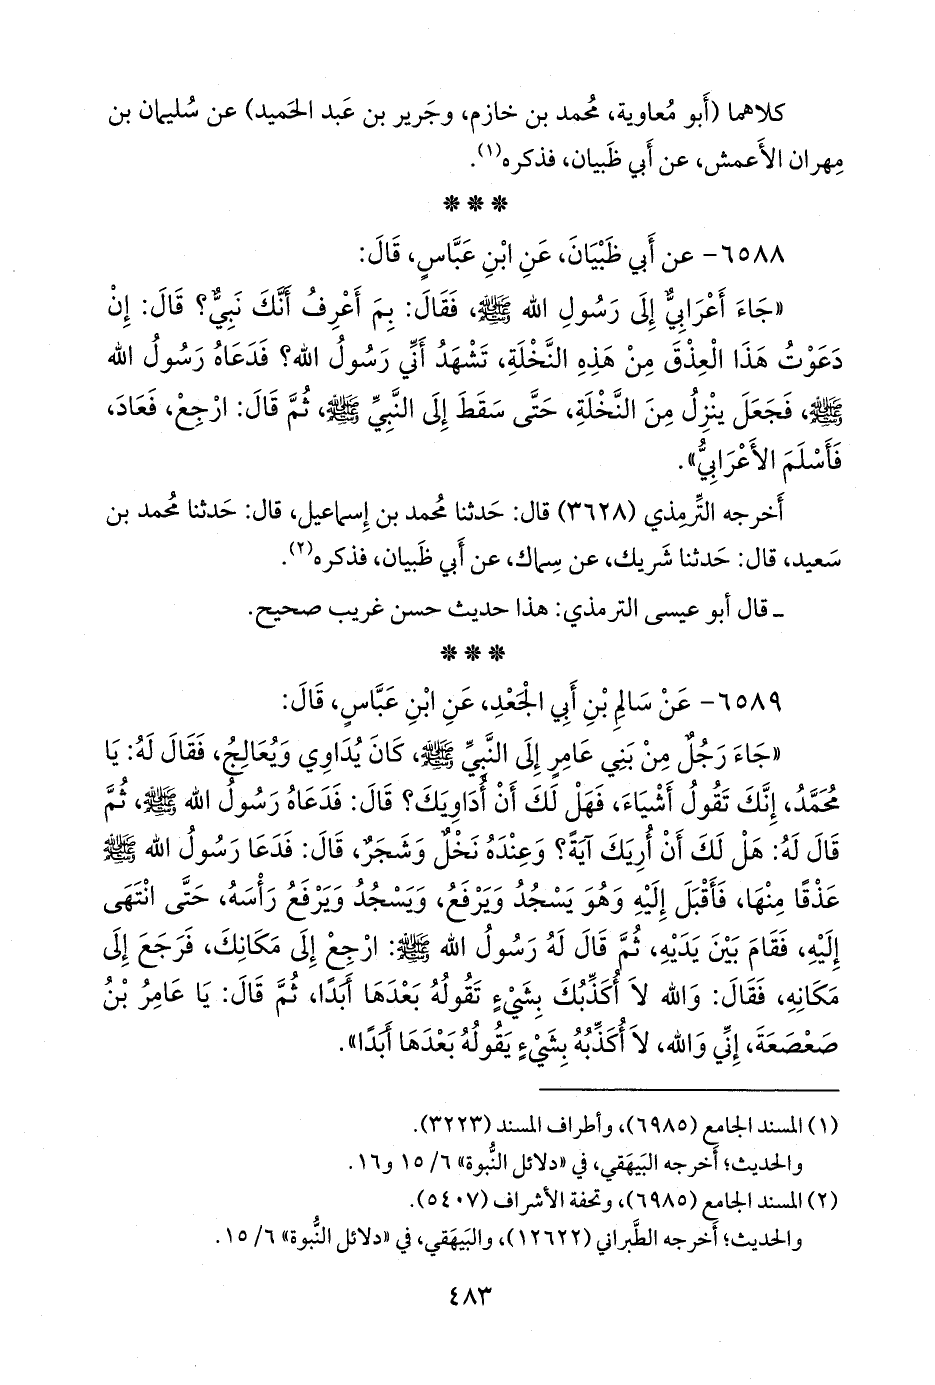 كلاهما (أَبو مُعاوية، مُحمد بن خازم، وجَرير بن عَبد الحَميد) عن سُليمان بن
مِهران الأَعمش، عن أَبي ظَبيان، فذكره(١).
* * *
٦٥٨٨- عن أَبي ظَبْيَانَ، عَنِ ابْنِ عَبَّاسٍ، قَالَ:
«جَاءَ أَعْرَابِيٌّ إِلَى رَسُولِ الله ﷺ، فَقَالَ: بِمَ أَعْرِفُ أَنَّكَ نَبِيٌّ؟ قَالَ: إِنْ
دَعَوْتُ هَذَا الْعِذْقَ مِنْ هَذِهِ النَّخْلَةِ، تَشْهَدُ أَنِّي رَسُولُ الله؟ فَدَعَاهُ رَسُولُ الله
ﷺ، فَجَعَلَ يَنْزِلُ مِنَ النَّخْلَةِ، حَتَّى سَقَطَ إِلَى النَّبِيِّ ﷺ، ثُمَّ قَالَ: ارْجِعْ، فَعَادَ،
فَأَسْلَمَ الأَعْرَابِيُّ».
أَخرجه التِّرمِذي (٣٦٢٨) قال: حَدثنا مُحمد بن إِسماعيل، قال: حَدثنا مُحمد بن
سَعيد، قال: حَدثنا شَريك، عن سِماك، عن أَبي ظَبيان، فذكره(٢).
ـ قال أبو عيسى الترمذي: هذا حديث حسن غريب صحيح.
* * *
٦٥٨٩- عَنْ سَالِمِ بْنِ أَبِي الْجَعْدِ، عَنِ ابْنِ عَبَّاسٍ، قَالَ:
«جَاءَ رَجُلٌ مِنْ بَنِي عَامِرٍ إِلَى النَّبِيِّ ﷺ، كَانَ يُدَاوِي وَيُعَالِجُ، فَقَالَ لَهُ: يَا
مُحَمَّدُ، إِنَّكَ تَقُولُ أَشْيَاءَ، فَهَلْ لَكَ أَنْ أُدَاوِيَكَ؟ قَالَ: فَدَعَاهُ رَسُولُ الله ﷺ، ثُمَّ
قَالَ لَهُ: هَلْ لَكَ أَنْ أُرِيَكَ آيَةً؟ وَعِنْدَهُ نَخْلٌ وَشَجَرٌ، قَالَ: فَدَعَا رَسُولُ الله ﷺ
عَذْقًا مِنْهَا، فَأَقْبَلَ إِلَيْهِ وَهُوَ يَسْجُدُ وَيَرْفَعُ، وَيَسْجُدُ وَيَرْفَعُ رَأْسَهُ، حَتَّى انْتَهَى
إِلَيْهِ، فَقَامَ بَيْنَ يَدَيْهِ، ثُمَّ قَالَ لَهُ رَسُولُ الله ﷺ: ارْجِعْ إِلَى مَكَانِكَ، فَرَجَعَ إِلَى
مَكَانِهِ، فَقَالَ: وَالله لاَ أُكَذِّبُكَ بِشَيْءٍ تَقُولُهُ بَعْدَهَا أَبَدًا، ثُمَّ قَالَ: يَا عَامِرُ بْنُ
صَعْصَعَةَ، إِنِّي وَالله، لاَ أُكَذِّبُهُ بِشَيْءٍ يَقُولُهُ بَعْدَهَا أَبَدًا».
(١) المسند الجامع (٦٩٨٥)، وأطراف المسند (٣٢٢٣).
والحديث؛ أَخرجه البَيهَقي، في «دلائل النُّبوة» ٦/ ١٥ و١٦.
(٢) المسند الجامع (٦٩٨٥)، وتحفة الأشراف (٥٤٠٧).
والحديث؛ أَخرجه الطَّبراني (١٢٦٢٢)، والبَيهَقي، في «دلائل النُّبوة» ٦/ ١٥.
٤٨٣